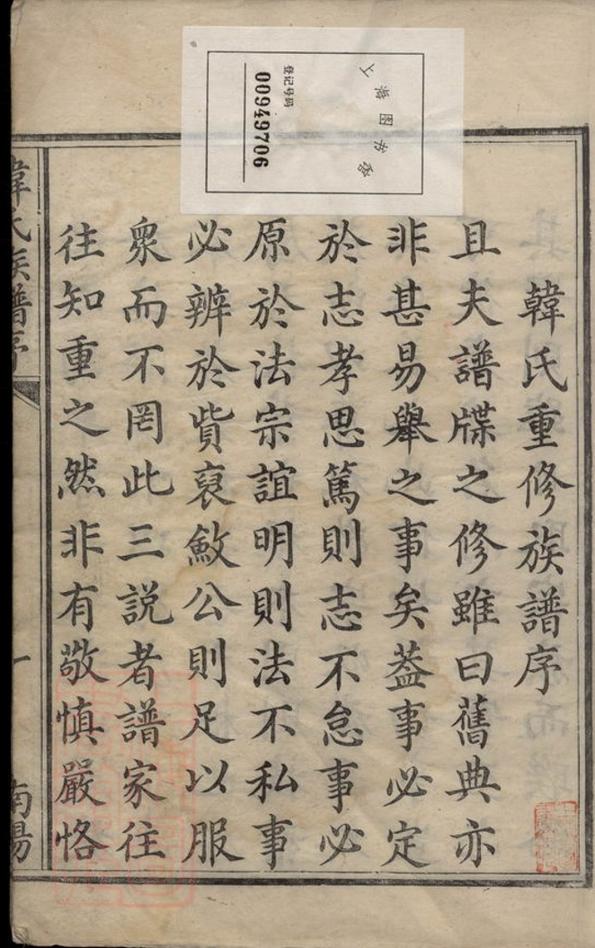 上海图书馆
登记号码
00949706
韓氏重修族譜序
且夫譜牒之修雖曰舊典亦
非甚易舉之事矣葢事必定
於志孝思篤則志不怠事必
原於法宗誼明則法不私事
必辨於貲裒斂公則足以服
衆而不罔此三說者譜家往
往知重之然非有敬慎嚴恪
韓氏族譜序
一
南陽